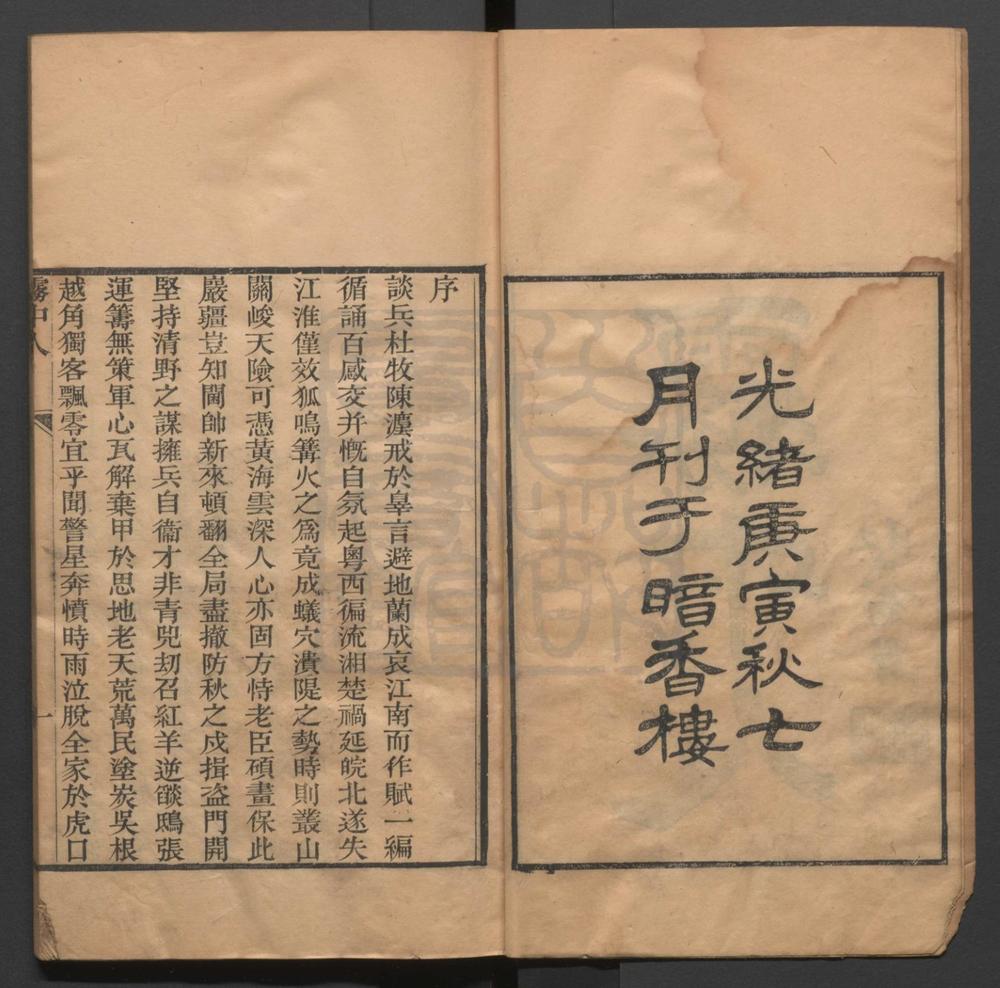 光緒庚寅秋七
月刊于暗香樓
序
談兵杜牧陳灋戒於皋言避地蘭成哀江南而作賦一編
循誦百感交并慨自氛起粵西徧流湘楚禍延皖北遂失
江淮僅效狐鳴篝火之為竟成蟻穴潰隄之勢時則叢山
關峻天險可憑黃海雲深人心亦固方恃老臣碩畫保此
巖疆豈知閫帥新來頓翻全局盡撤防秋之戍揖盜門開
堅持清野之謀擁兵自衞才非青兕刼召紅羊逆燄鴟張
運籌無策軍心瓦解棄甲於思地老天荒萬民塗炭吳根
越角獨客飄零宜乎聞警星奔憤時雨泣脫全家於虎口
霧中人
一